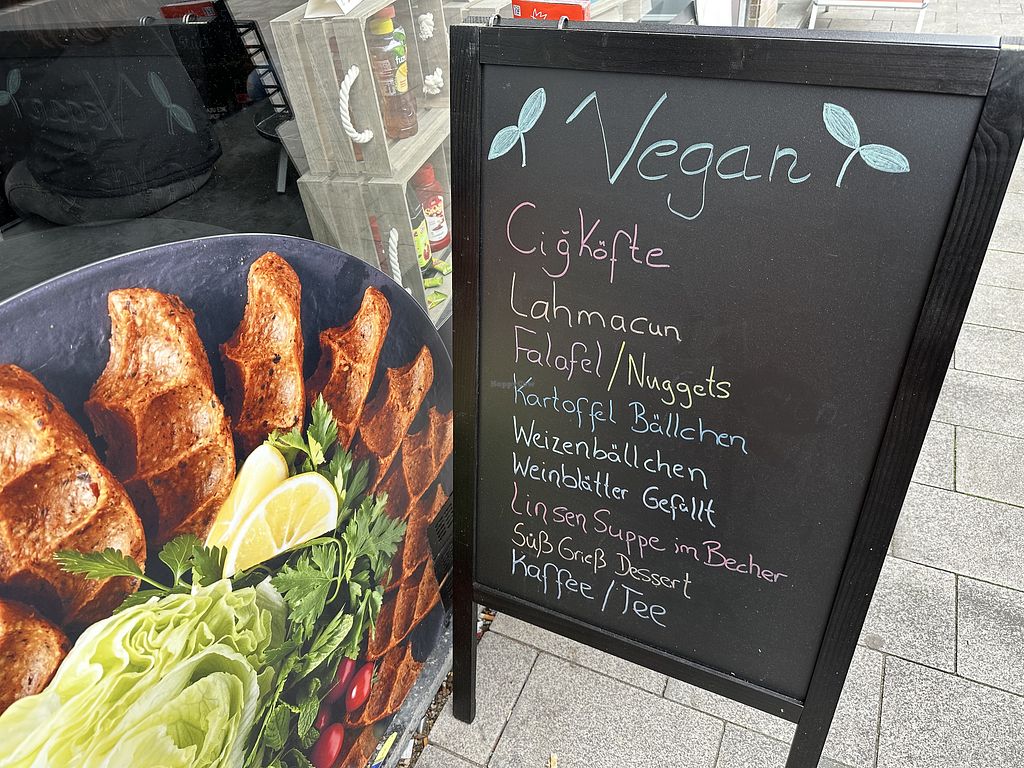 Vegan
CiğKöfte
Lahmacun
Falafel/Nuggets
Kartoffel Bällchen
Weizenbällchen
Weinblätter Gefüllt
Linsen Suppe im Becher
Süß Grieß Dessert
Kaffee/Tee